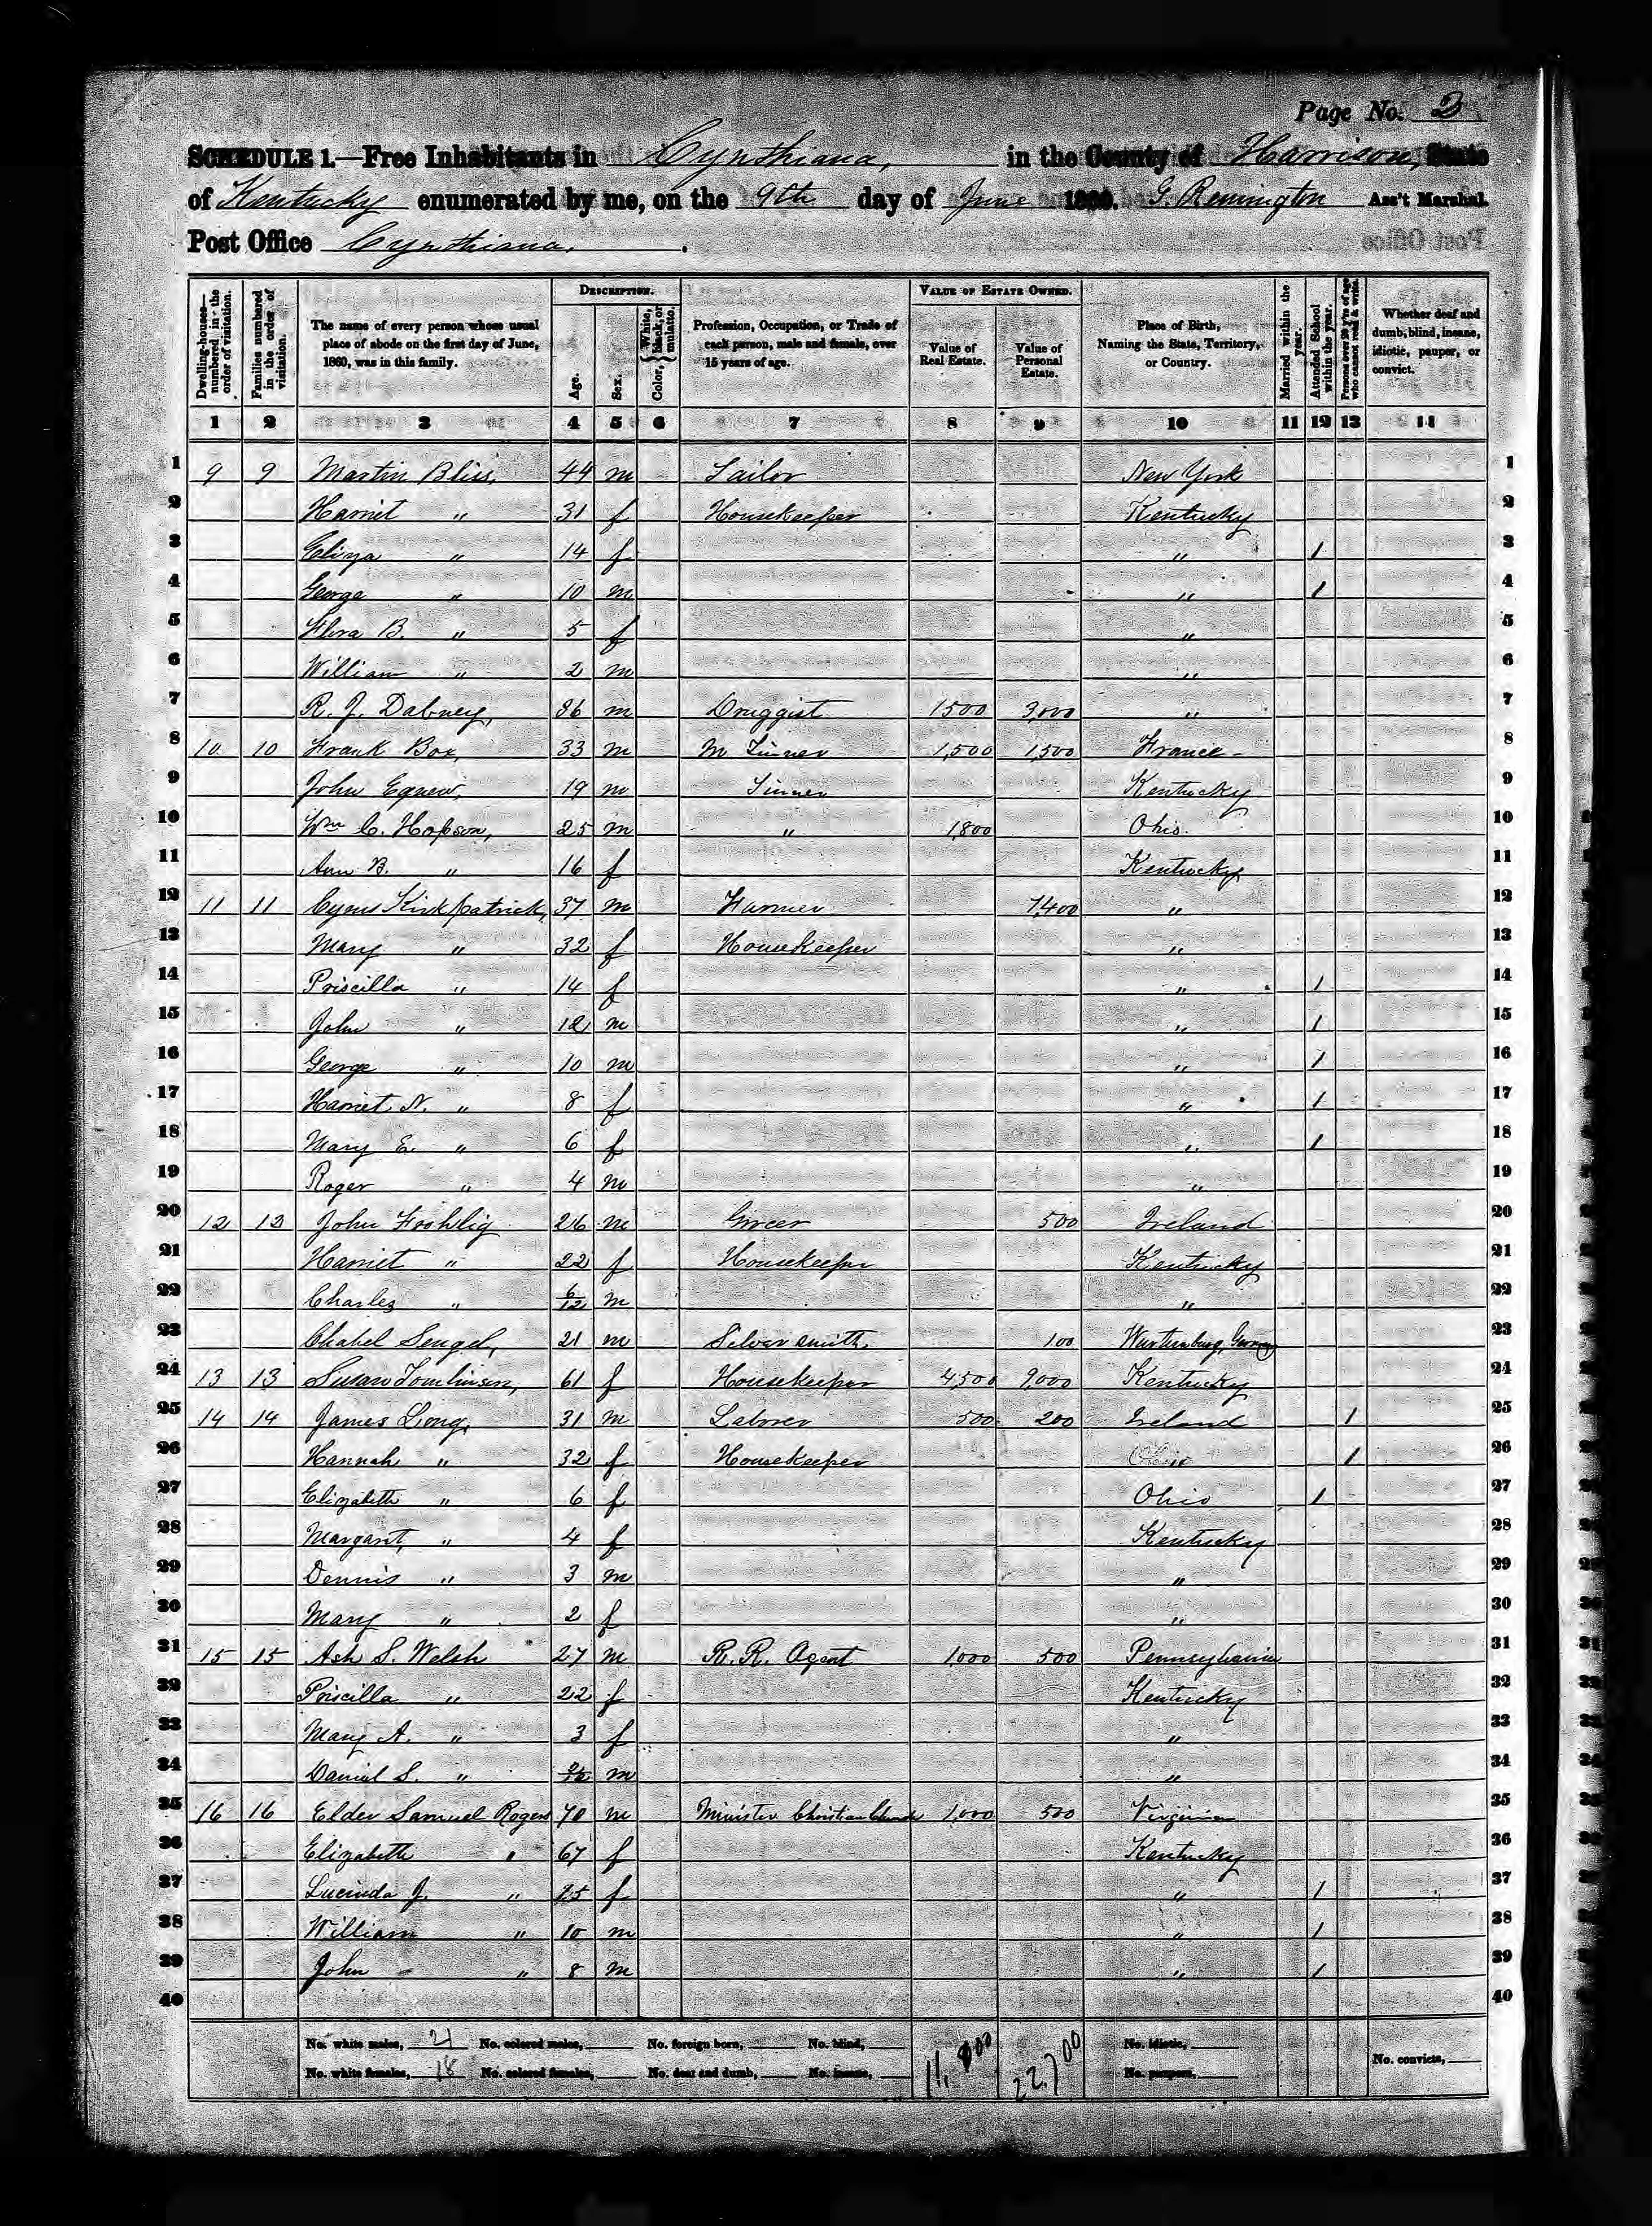 Page No. 2
SCHEDULE 1.—Free Inhabitants in Cynthiana, in the County of Harrison, State
of Kentucky enumerated by me, on the 9th day of June 1860. G. Remington Ass't Marshal.
Post Office Cynthiana.
Dwelling-houses—numbered in the order of visitation.
Families numbered in the order of visitation.
The name of every person whose usual place of abode on the first day of June, 1860, was in this family.
DESCRIPTION.
Age.
Sex.
Color, White, black, or mulatto.
Profession, Occupation, or Trade of each person, male and female, over 15 years of age.
VALUE OF ESTATE OWNED.
Value of Real Estate.
Value of Personal Estate.
Place of Birth, Naming the State, Territory, or Country.
Married within the year.
Attended School within the year.
Persons over 20 y'rs of age who cannot read & write.
Whether deaf and dumb, blind, insane, idiotic, pauper, or convict.
1 2 3 4 5 6 7 8 9 10 11 12 13 14
1 9 9 Martin Bliss, 44 m Tailor New York 1
2 Harriet " 31 f Housekeeper Kentucky 2
3 Eliza " 14 f " 1 3
4 George " 10 m " 1 4
5 Flora B. " 5 f " 5
6 William " 2 m " 6
7 R. J. Dabney, 36 m Druggist 1500 3,000 " 7
8 10 10 Frank Box, 33 m M Tinner 1,500 1,500 France 8
9 John Egnew, 19 m Tinner Kentucky 9
10 Wm C. Hopson, 25 m " 1,800 Ohio. 10
11 Ann B. " 16 f Kentucky 11
12 11 11 Cyrus Kirkpatrick, 37 m Farmer 7,400 " 12
13 Mary " 32 f Housekeeper " 13
14 Priscilla " 14 f " 1 14
15 John " 12 m " 1 15
16 George " 10 m " 1 16
17 Harriet N. " 8 f " 1 17
18 Mary E. " 6 f " 1 18
19 Roger " 4 m " 19
20 12 12 John 26 m Grocer 500 Ireland 20
21 Harriet " 22 f Housekeeper Kentucky 21
22 Charles " 6/12 m " 22
23 Sengel, 21 m Silver smith 100 Wurtemburg, Germany 23
24 13 13 Susan Tomlinson, 61 f Housekeeper 4,500 9,000 Kentucky 24
25 14 14 James Long, 31 m Laborer 500 200 Ireland 1 25
26 Hannah " 32 f Housekeeper 1 26
27 Elizabeth " 6 f Ohio 1 27
28 Margaret, " 4 f Kentucky 28
29 Dennis " 3 m " 29
30 Mary " 2 f " 30
31 15 15 Ash S. Welsh 27 m R. R. Agent 1,000 500 Pennsylvania 31
32 Priscilla " 22 f Kentucky 32
33 Mary A. " 3 f " 33
34 Daniel S. " m " 34
35 16 16 Elder Samuel Rogers 70 m Minister Christian Church 1,000 500 Virginia 35
36 Elizabeth " 67 f Kentucky 36
37 Lucinda J. " f " 1 37
38 William " 10 m " 1 38
39 John " 8 m " 1 39
40 40
No. white males, 21 No. colored males, No. foreign born, No. blind, 11,800 22,700 No. idiotic,
No. white females, 18 No. colored females, No. deaf and dumb, No. insane, No. paupers, No. convicts,